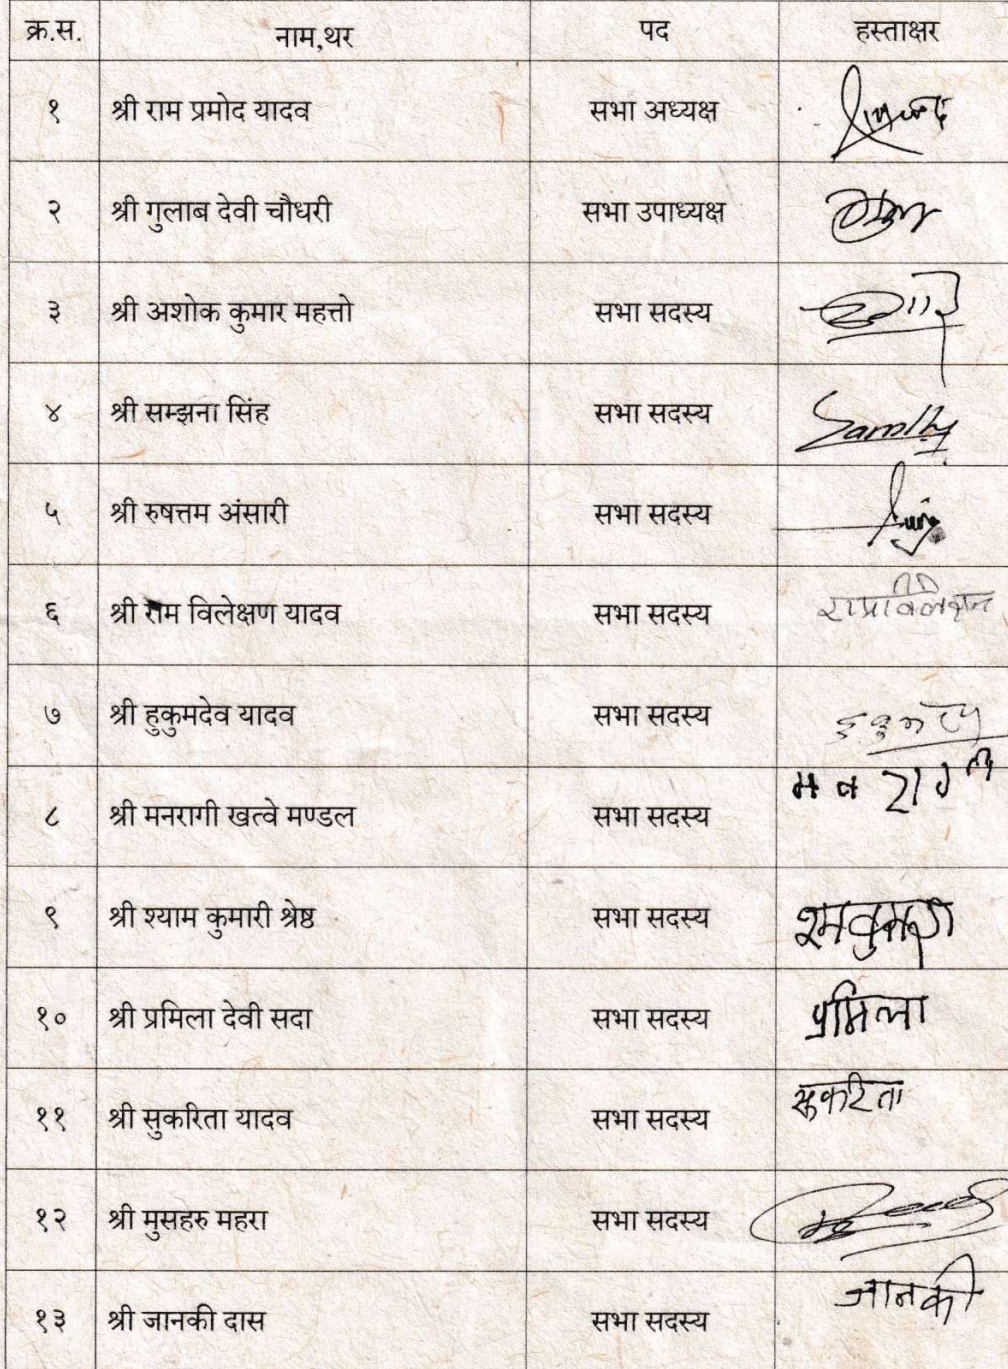 क्र.स. नाम,थर पद हस्ताक्षर
१ श्री राम प्रमोद यादव सभा अध्यक्ष
२ श्री गुलाब देवी चौधरी सभा उपाध्यक्ष
३ श्री अशोक कुमार महत्तो सभा सदस्य
४ श्री सम्झना सिंह सभा सदस्य
५ श्री रुषत्तम अंसारी सभा सदस्य
६ श्री राम विलेक्षण यादव सभा सदस्य
७ श्री हुकुमदेव यादव सभा सदस्य
८ श्री मनरागी खत्वे मण्डल सभा सदस्य
९ श्री श्याम कुमारी श्रेष्ठ सभा सदस्य
१० श्री प्रमिला देवी सदा सभा सदस्य प्रमिला
११ श्री सुकरिता यादव सभा सदस्य सुकरिता
१२ श्री मुसहरु महरा सभा सदस्य
१३ श्री जानकी दास सभा सदस्य जानकी